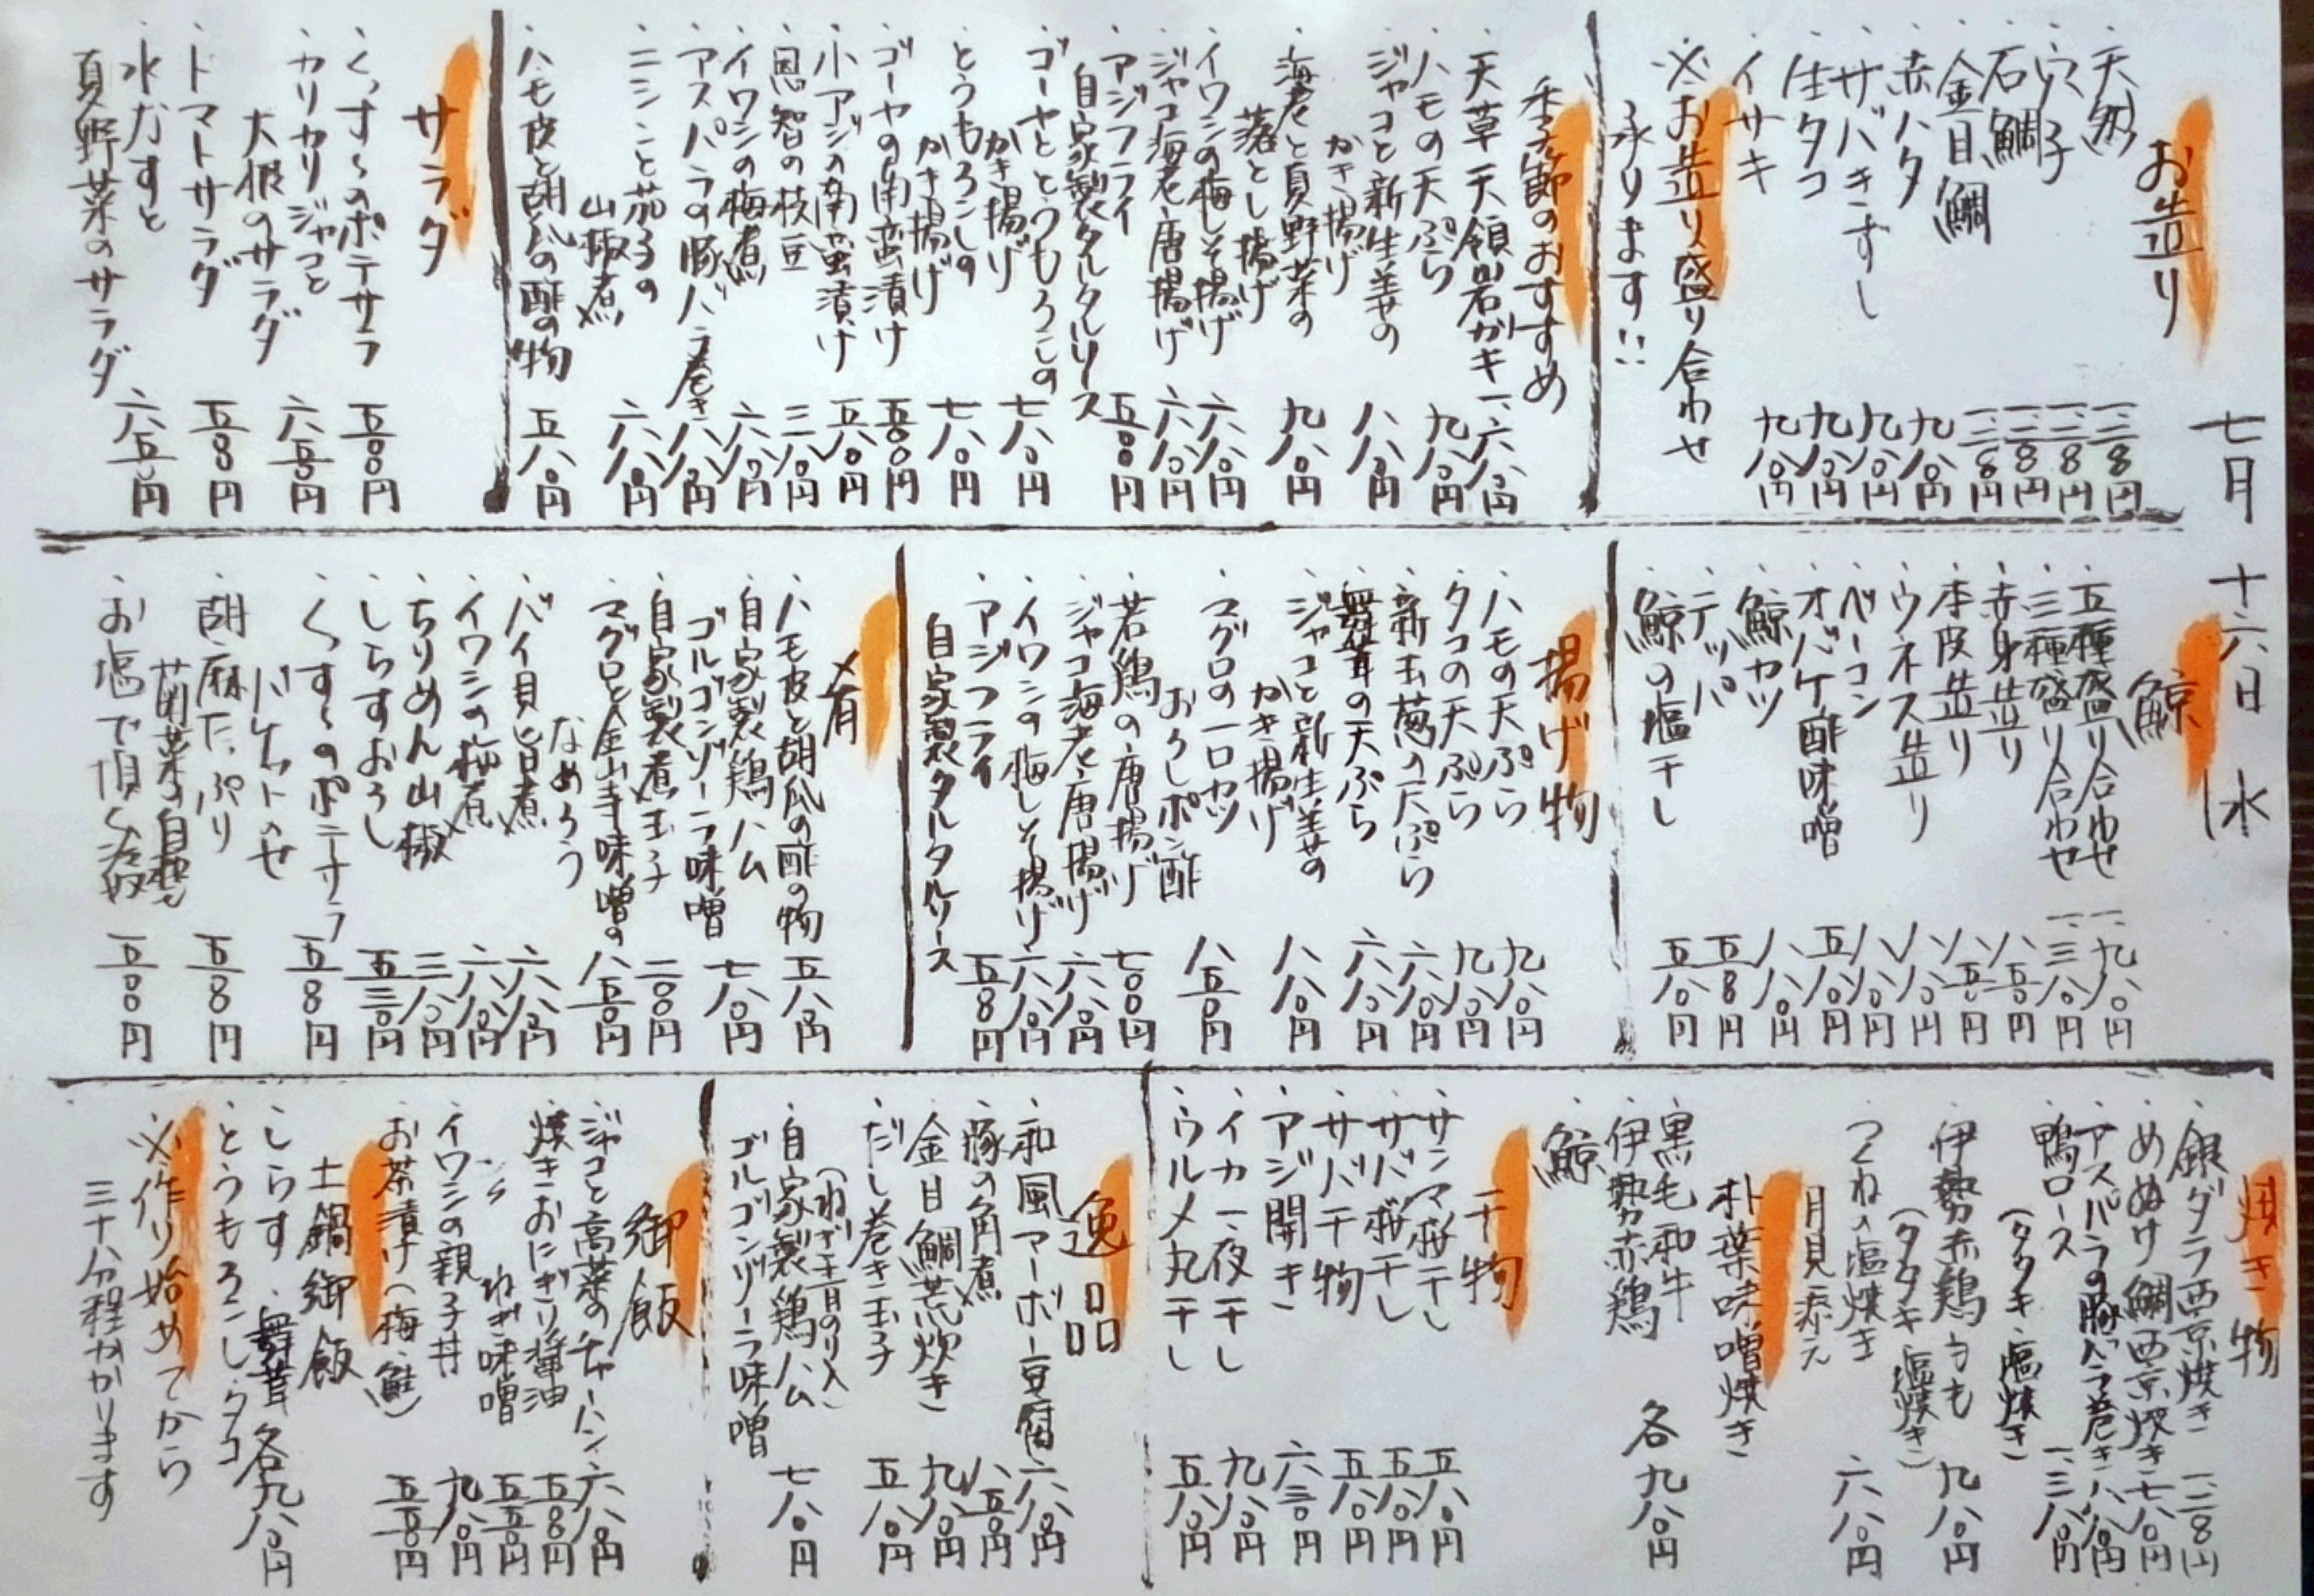 七月十六日 水
お造り
・天然
・穴子
・石鯛 一、二八〇円
・金目鯛
・赤ハタ 九八〇円
・サバきずし 九八〇円
・生タコ 九八〇円
・イサキ 九八〇円
※お造り盛り合わせ
承ります!!
季節のおすすめ
・天草 天領岩ガキ 一、六八〇円
・ハモの天ぷら 九八〇円
・ジャコと新生姜の
かき揚げ 八八〇円
・海老と夏野菜の
落とし揚げ 九八〇円
・イワシの梅しそ揚げ 六八〇円
・ジャコ海老唐揚げ 六八〇円
・アジフライ
自家製タルタルソース 五五〇円
・ゴーヤととうもろこしの
かき揚げ 七八〇円
・とうもろこしの
かき揚げ 七八〇円
・ゴーヤの南蛮漬け 五五〇円
・小アジの南蛮漬け 五八〇円
・恩智の枝豆 三八〇円
・イワシの梅煮 六八〇円
・アスパラの豚バラ巻き 八八〇円
・ニシンと茄子の
山椒煮 六八〇円
・ハモ皮と胡瓜の酢の物 五八〇円
サラダ
・くっすーのポテサラ 五五〇円
・カリカリジャコと
大根のサラダ 六五〇円
・トマトサラダ 五五〇円
・水なすと
夏野菜のサラダ 六五〇円
鯨
・五種盛り合わせ 一、九八〇円
・三種盛り合わせ 一、三八〇円
・赤身造り 八五〇円
・本皮造り 八五〇円
・ウネス造り 八八〇円
・ベーコン 八八〇円
・オバケ酢味噌 五八〇円
・鯨カツ 八八〇円
・テッパ 五五〇円
・鯨の塩干し 五八〇円
揚げ物
・ハモの天ぷら 九八〇円
・タコの天ぷら 九八〇円
・新玉葱の天ぷら 六八〇円
・舞茸の天ぷら 六八〇円
・ジャコと新生姜の
かき揚げ 八八〇円
・マグロの一口カツ
おろしポン酢 八五〇円
・若鶏の唐揚げ 七〇〇円
・ジャコ海老唐揚げ 六八〇円
・イワシの梅しそ揚げ 六八〇円
・アジフライ
自家製タルタルソース 五五〇円
肴
・ハモ皮と胡瓜の酢の物 五八〇円
・自家製鶏ハム
ゴルゴンゾーラ味噌 七八〇円
・自家製煮玉子 二〇〇円
・マグロと金山寺味噌の
なめろう 八五〇円
・バイ貝旨煮 六八〇円
・イワシの梅煮 六八〇円
・ちりめん山椒 三八〇円
・しらすおろし 五三〇円
・くっすーのポテサラ
バケットのせ 五五〇円
・胡麻たっぷり
菊菜の白和え 五五〇円
・お塩で頂く冷奴 五五〇円
焼き物
・銀ダラ西京焼き 一、二八〇円
・めぬけ鯛西京焼き 七八〇円
・アスパラの豚バラ巻き 八八〇円
・鴨ロース
(タタキ・塩焼き) 一、三八〇円
・伊勢赤鶏もも
(タタキ・塩焼き) 九八〇円
・つくねの塩焼き
月見添え 六八〇円
朴葉味噌焼き
・黒毛和牛
・伊勢赤鶏 各九八〇円
・鯨
干物
・サンマ桜干し 五八〇円
・サバ桜干し 五八〇円
・サバ干物 五八〇円
・アジ開き 六三〇円
・イカ一夜干し 九八〇円
・ウルメ丸干し 五八〇円
逸品
・和風マーボー豆腐 六八〇円
・豚の角煮 八五〇円
・金目鯛荒炊き 九八〇円
・だし巻き玉子
(ねぎ・青のり入) 五八〇円
・自家製鶏ハム
ゴルゴンゾーラ味噌 七八〇円
御飯
・ジャコと高菜のチャーハン 六八〇円
・焼きおにぎり醤油 五五〇円
・〃 ねぎ味噌 五五〇円
・イワシの親子丼 九八〇円
・お茶漬け(梅・鮭) 五五〇円
土鍋御飯
・しらす・舞茸 各九八〇円
・とうもろこし・タコ
※作り始めてから
三十分程かかります